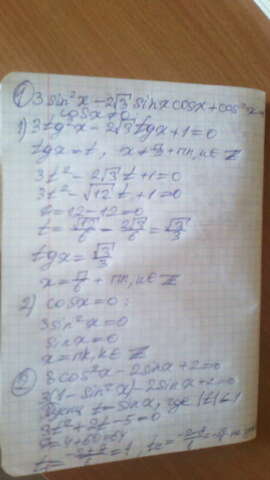 ① 3 sin²x - 2√3 sinx cosx + cos²x =
cosx ≠ 0
1) 3tg²x - 2√3 tgx + 1 = 0
tgx = t, x ≠ π/2 + πn, n ∈ Z
3t² - 2√3 t + 1 = 0
3t² - √12 t + 1 = 0
D = 12 - 12 = 0
t = √12/6 = 2√3/6 = √3/3
tgx = √3/3
x = π/6 + πn, n ∈ Z
2) cosx = 0:
3sin²x = 0
sinx = 0
x = πk, k ∈ Z
② 3cos²x - 2sinx + 2 = 0
3(1 - sin²x) - 2sinx + 2 = 0
t = sinx, где |t| ≤ 1
3t² + 2t - 5 = 0
D = 4 + 60 = 64